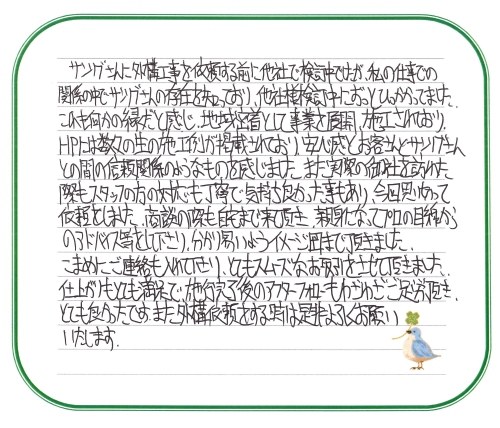 サングさんに外構工事を依頼する前に他社で検討中でしたが、私の仕事での
関係の中でサングさんの存在を知っており、他社様検討中にずっとひっかかってました。
これも何かの縁だと感じ、地域密着として事業を展開、施工されており、
HPには数々の生の施工例が掲載されており、安心感とお客さんとサングさん
との間の信頼関係のようなものを感じました。また実際の御社を訪れた
際も、スタッフの方の対応も丁寧で気持ち良かった事もあり、今回思いきって
依頼をしました。商談の際も自宅まで来て頂き、親身になってプロの目線から
のアドバイス等をして下さり、分かり易いようイメージ図まで頂きました。
こまめにご連絡も入れて下さり、とてもスムーズなお取引をさせて頂きました。
仕上がりもとても満足で、施行完了後のアフターフォローもわざわざご足労頂き、
とても良かったです。また外構依頼をする時は是非よろしくお願い
いたします。